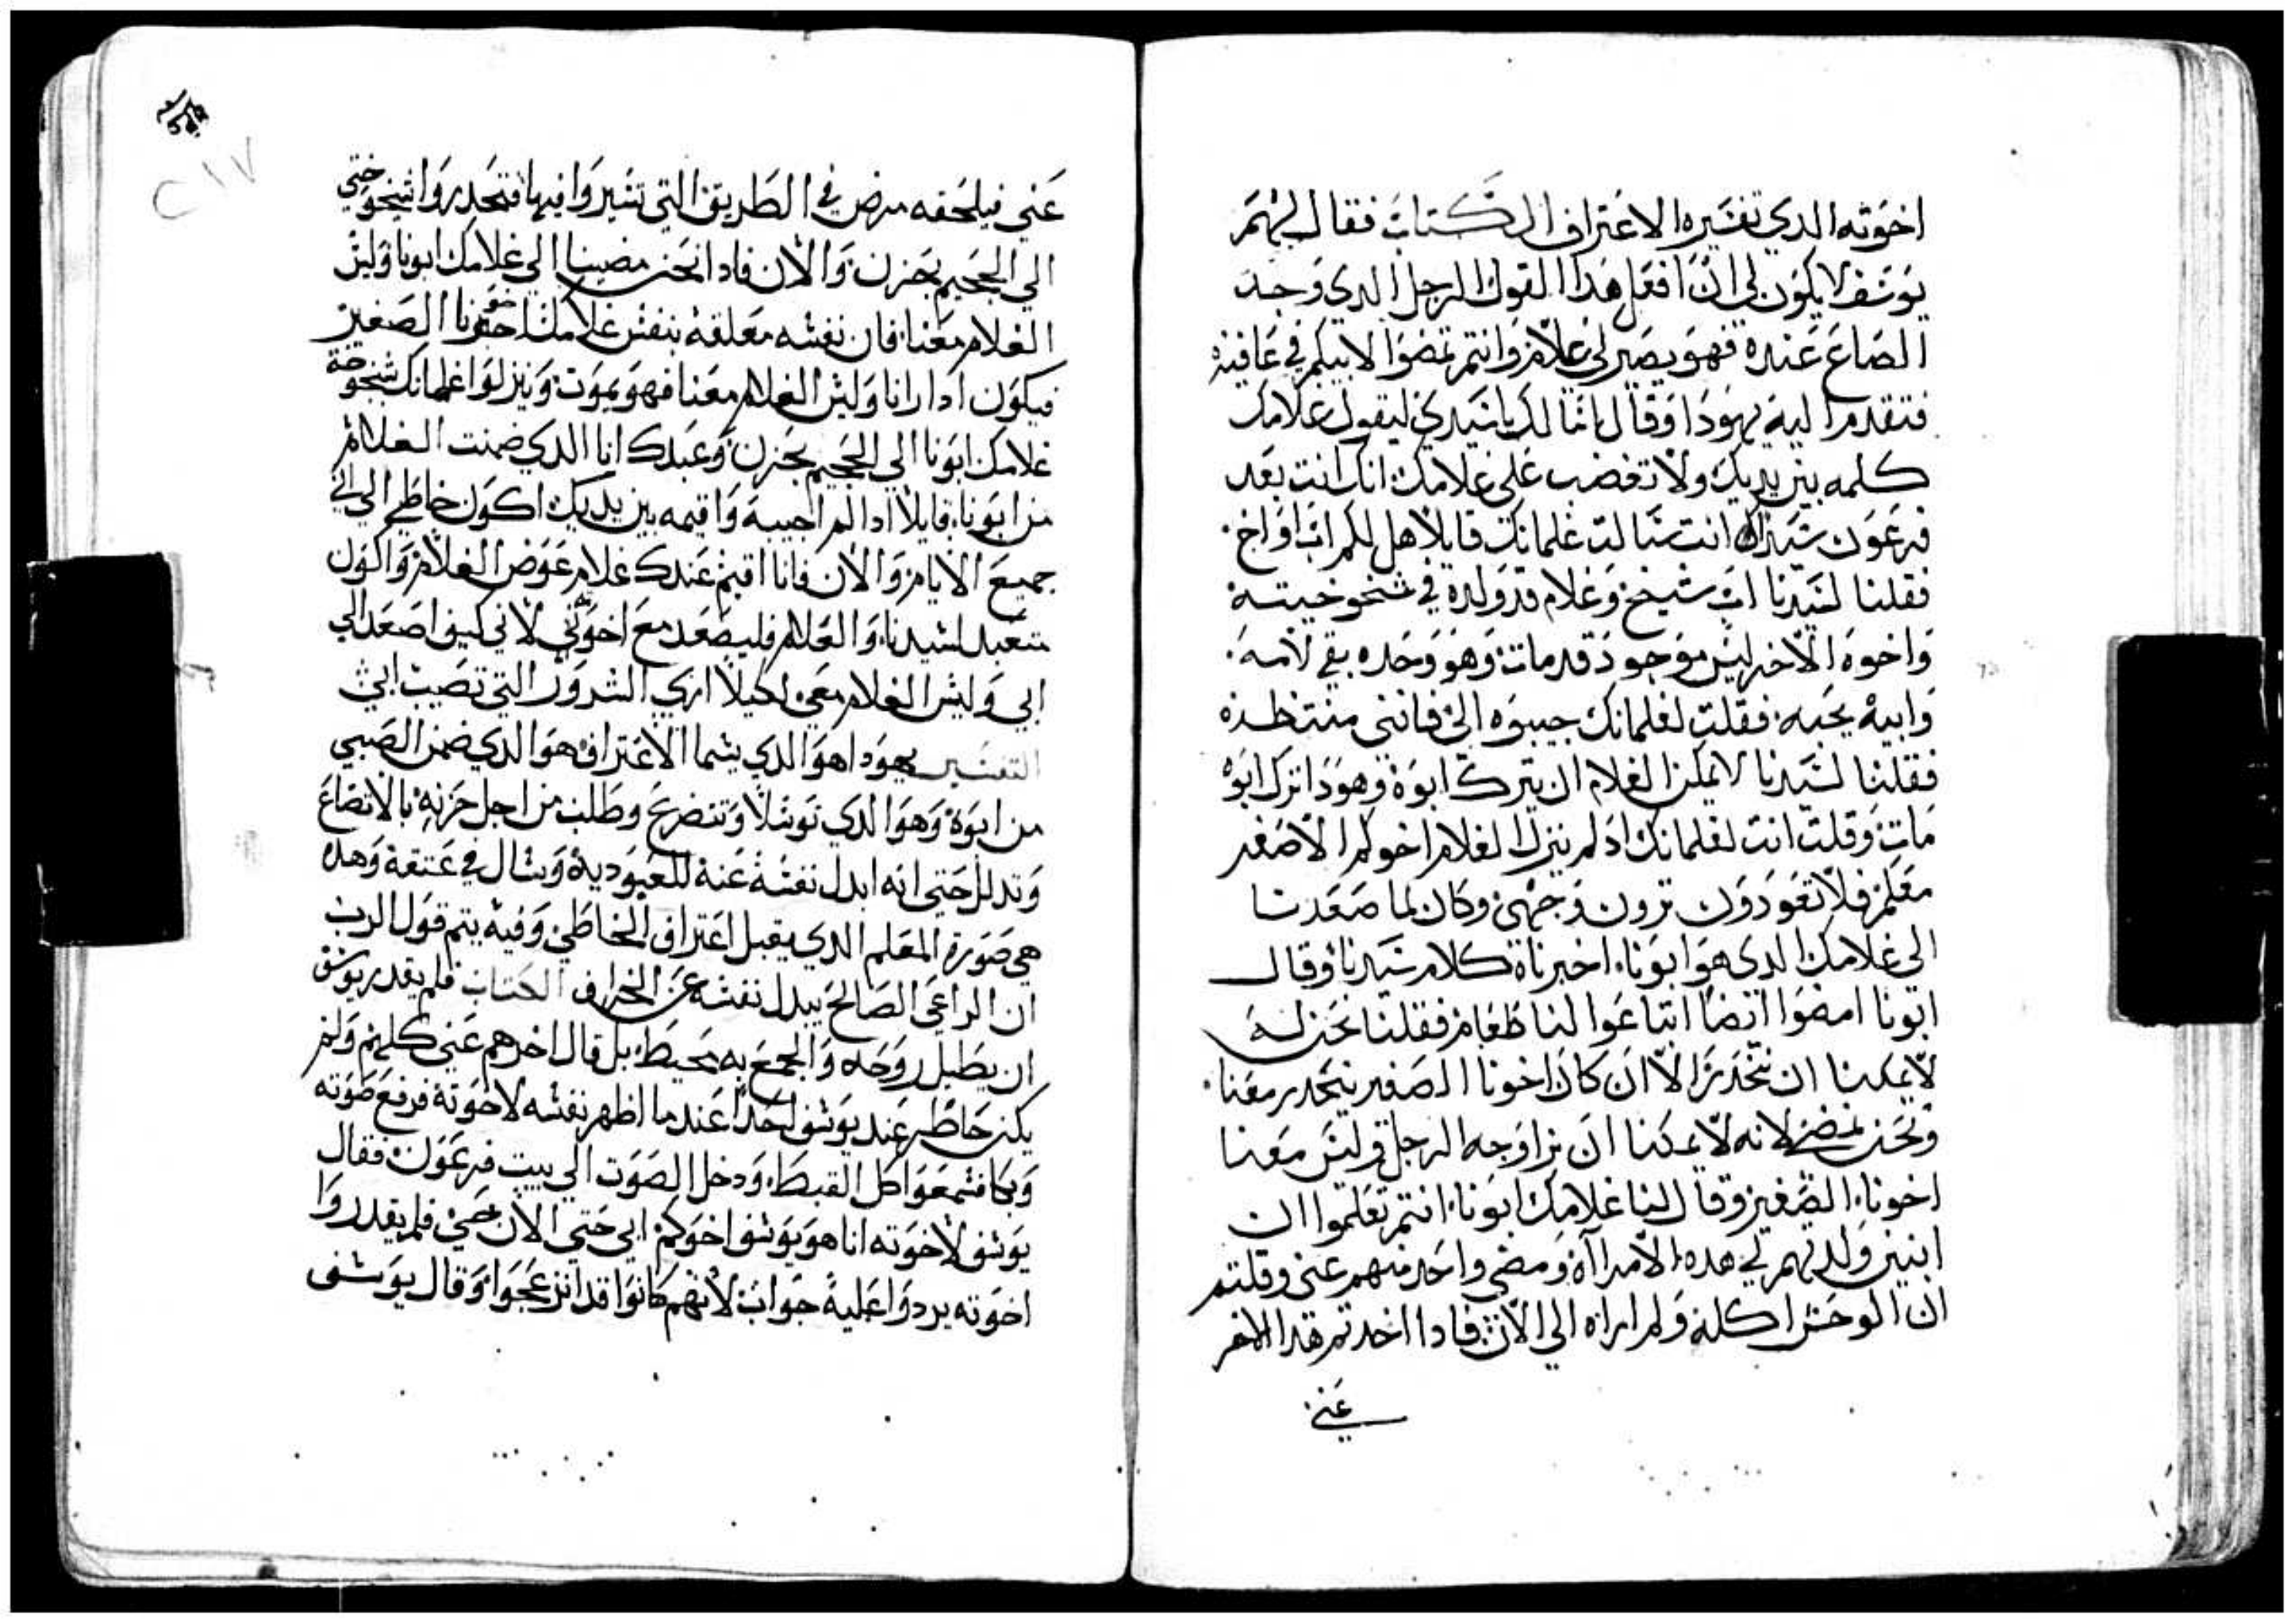 اخوته الدي تفسيره الاعتراف الكتاب فقال لهم
يوسف لا يكون لي ان افعل هدا القول الرجل الدي وجد
الصاع عنده فهو يصير لي غلام وانتم تمضوا لابيكم في عافيه
فتقدم اليه يهودا وقال انا لك ياسيدي ليقول غلامك
كلمه بين يديك ولا تغضب علي غلامك انك انت بعد
فرعون سيدي انت سالت غلمانك قايلا هل لكم اب او اخ
فقلنا لسيدنا اب شيخ وغلام قد ولده في شخوخيته
واخوه الاخر ليس موجود قد مات وهو وحده بقي لامه
وابيه يحبه فقلت لغلمانك جيبوه الي فانني منتظره
فقلنا لسيدنا لا يمكن الغلام ان يترك ابوه وهو دا ترك ابوه
مات وقلت انت لغلمانك اد لم ينزل الغلام اخوكم الاصغر
معكم فلا تعودون ترون وجهي وكان لما صعدنا
الي غلامك الدي هو ابونا اخبرناه كلام سيدنا وقال
ابونا امضوا ايضا ابتاعوا لنا طعام فقلنا نحن له
لا يمكننا ان ننحدر الا ان كان اخونا الصغير ينحدر معنا
ونحن نمضي لانه لا يمكنا ان نرا وجه الرجل وليس معنا
اخونا الصغير وقال لنا غلامك ابونا انتم تعلموا ان
ابنين ولدتهم لي هده الامراآه ومضي واحد منهم عني وقلتم
ان الوحش اكله ولم اراه الي الان فادا اخدتم هدا الاخر
عني
٢١٧
عني فيلحقه مرض في الطريق التي تسيروا فيها فتحدروا شيخوختي
الي الجحيم بحزن والان فادا نحن مضينا الي غلامك ابونا وليس
الغلام معنا فان نفسه معلقه بنفس غلامك اخونا الصغير
فيكون ادا رانا وليس الغلام معنا فهو يموت وينزلوا غلمانك شيخوخة
غلامك ابونا الي الجحيم بحزن وعبدك انا الدي ضمنت الغلام
من ابونا قايلا ادا لم اجيبه واقيمه بين يديك اكون خاطي الي ابي
جميع الايام والان فانا اقيم عندك غلام عوض الغلام واكون
متعبد لسيدنا والغلام فليصعد مع اخوتي لاني كيف اصعد الي
ابي وليس الغلام معي لكيلا اري الشرور التي تصيب ابي
التفسير يهودا هو الدي يسما الاعتراف هو الدي ضمن الصبي
من ابوه وهو الدي توسلا وتضرع وطلب من اجل حزنه بالاتضاع
وتدلل حتي انه ابدل نفسه عنه للعبوديه وسال في عتقه وهده
هي صورة المعلم الدي يقبل اعتراف الخاطي وفيه يتم قول الرب
ان الراعي الصالح يبدل نفسه عن الخراف الكتاب فلم يقدر يوسف
ان يطيل روحه والجمع به محيط بل قال اخرجهم عني كلهم ولم
يكن حاطر عند يوسف احدا عندما اظهر نفسه لاخوته فرفع صوته
وبكا فسمعوا كل القبط ودخل الصوت الي بيت فرعون فقال
يوسف لاخوته انا هو يوسف اخوكم ابي حتي الان حي فلم يقدروا
اخوته يردوا عليه جواب لانهم كانوا قد انزعجوا وقال يوسف